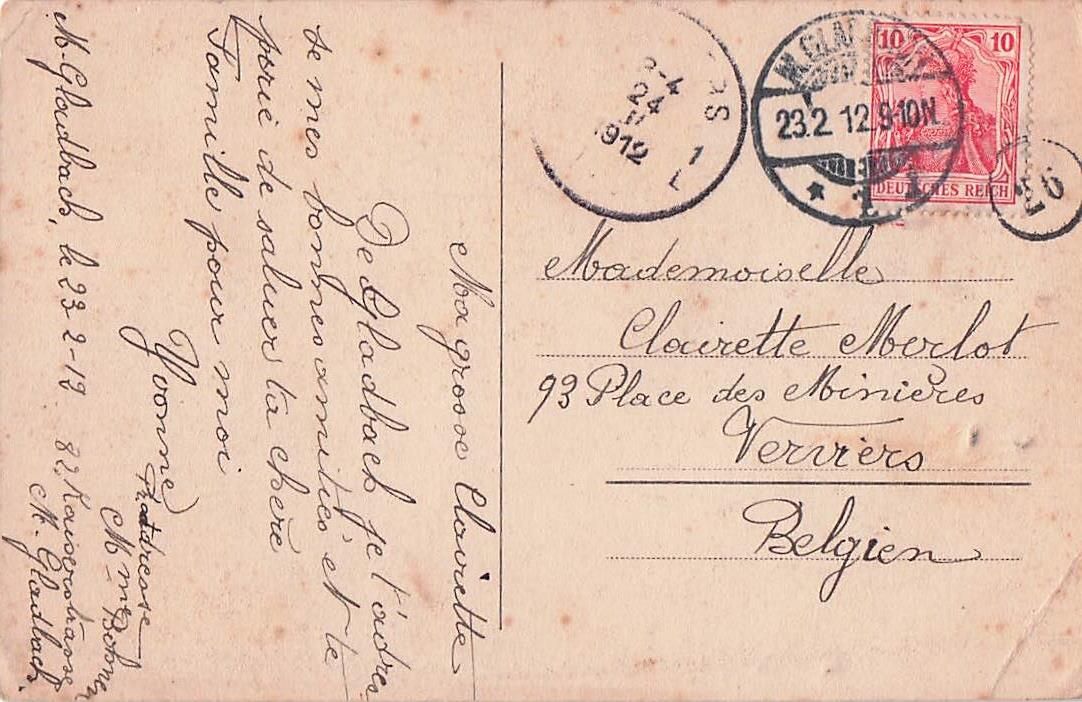 Ma grosse Clairette
De Gladbach je t'adres
se mes bonnes amitiés et te
prie de saluer ta chère
Famille pour moi
Yvonne
adresse
Mme
M. Gladbach, le 23-2-12
82, Kaiserstrasse
M. Gladbach
RS
3-4
24
II
1912
1
L
M. GLADBACH
23.2.12.9-10N.
* 2
10 10
DEUTSCHES REICH
26
Mademoiselle
Clairette Merlot
93 Place des Minières
Verviers
Belgien